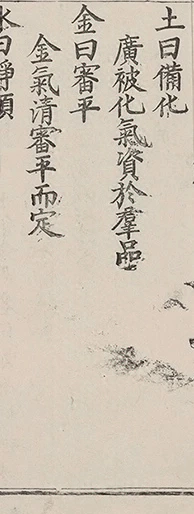 土曰備化
廣被化氣資於羣品
金曰審平
金氣清審平而定
水曰靜順